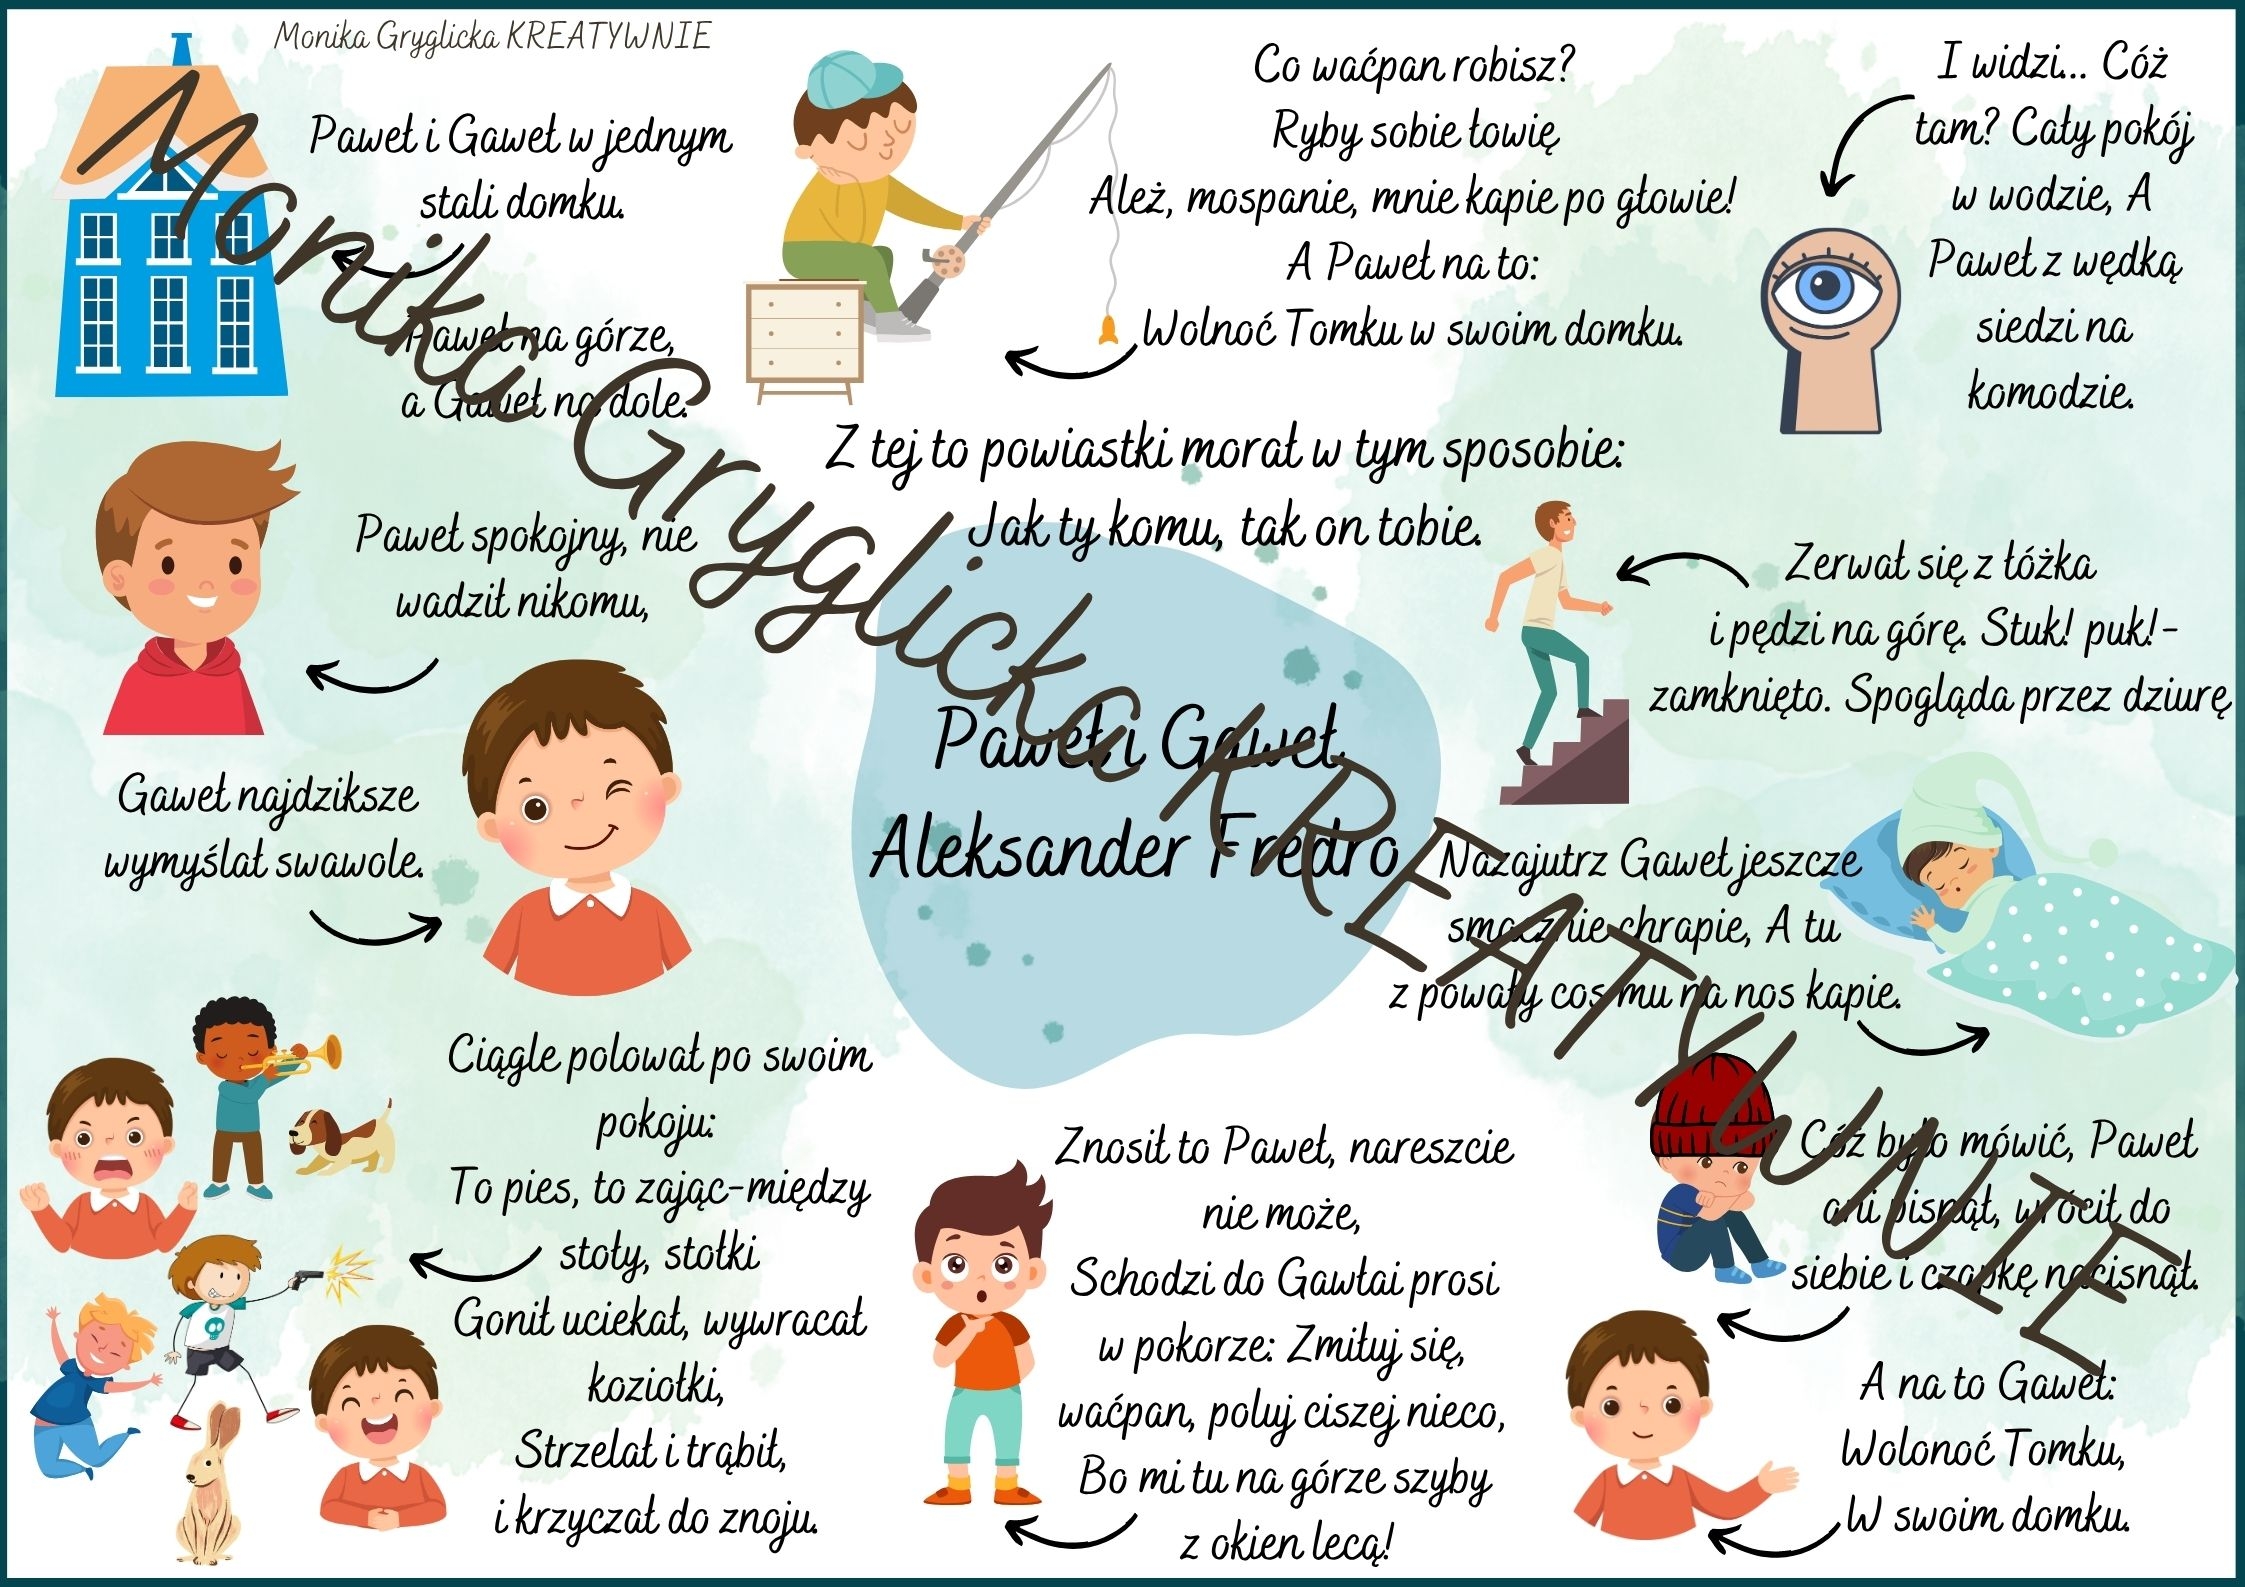 Monika Gryglicka KREATYWNIE
Paweł i Gaweł w jednym
stali domku.
Paweł na górze,
a Gaweł na dole.
Paweł spokojny, nie
wadził nikomu,
Gaweł najdziksze
wymyślał swawole.
Ciągle polował po swoim
pokoju:
To pies, to zając-między
stoły, stołki
Gonił uciekał, wywracał
koziołki,
Strzelał i trąbił,
i krzyczał do znoju.
Znosił to Paweł, nareszcie
nie może,
Schodzi do Gawłai prosi
w pokorze: Zmiłuj się,
waćpan, poluj ciszej nieco,
Bo mi tu na górze szyby
z okien lecą!
A na to Gaweł:
Wolonoć Tomku,
W swoim domku.
Cóż było mówić, Paweł
ani pisnął, wrócił do
siebie i czapkę nacisnął.
Nazajutrz Gaweł jeszcze
smacznie chrapie, A tu
z powały cos mu na nos kapie.
Zerwał się z łóżka
i pędzi na górę. Stuk! puk!-
zamknięto. Spogląda przez dziurę
I widzi... Cóż
tam? Cały pokój
w wodzie, A
Paweł z wędką
siedzi na
komodzie.
Co waćpan robisz?
Ryby sobie łowię
Ależ, mospanie, mnie kapie po głowie!
A Paweł na to:
Wolnoć Tomku w swoim domku.
Z tej to powiastki morał w tym sposobie:
Jak ty komu, tak on tobie.
Paweł i Gaweł
Aleksander Fredro
Monika Gryglicka KREATYWNIE